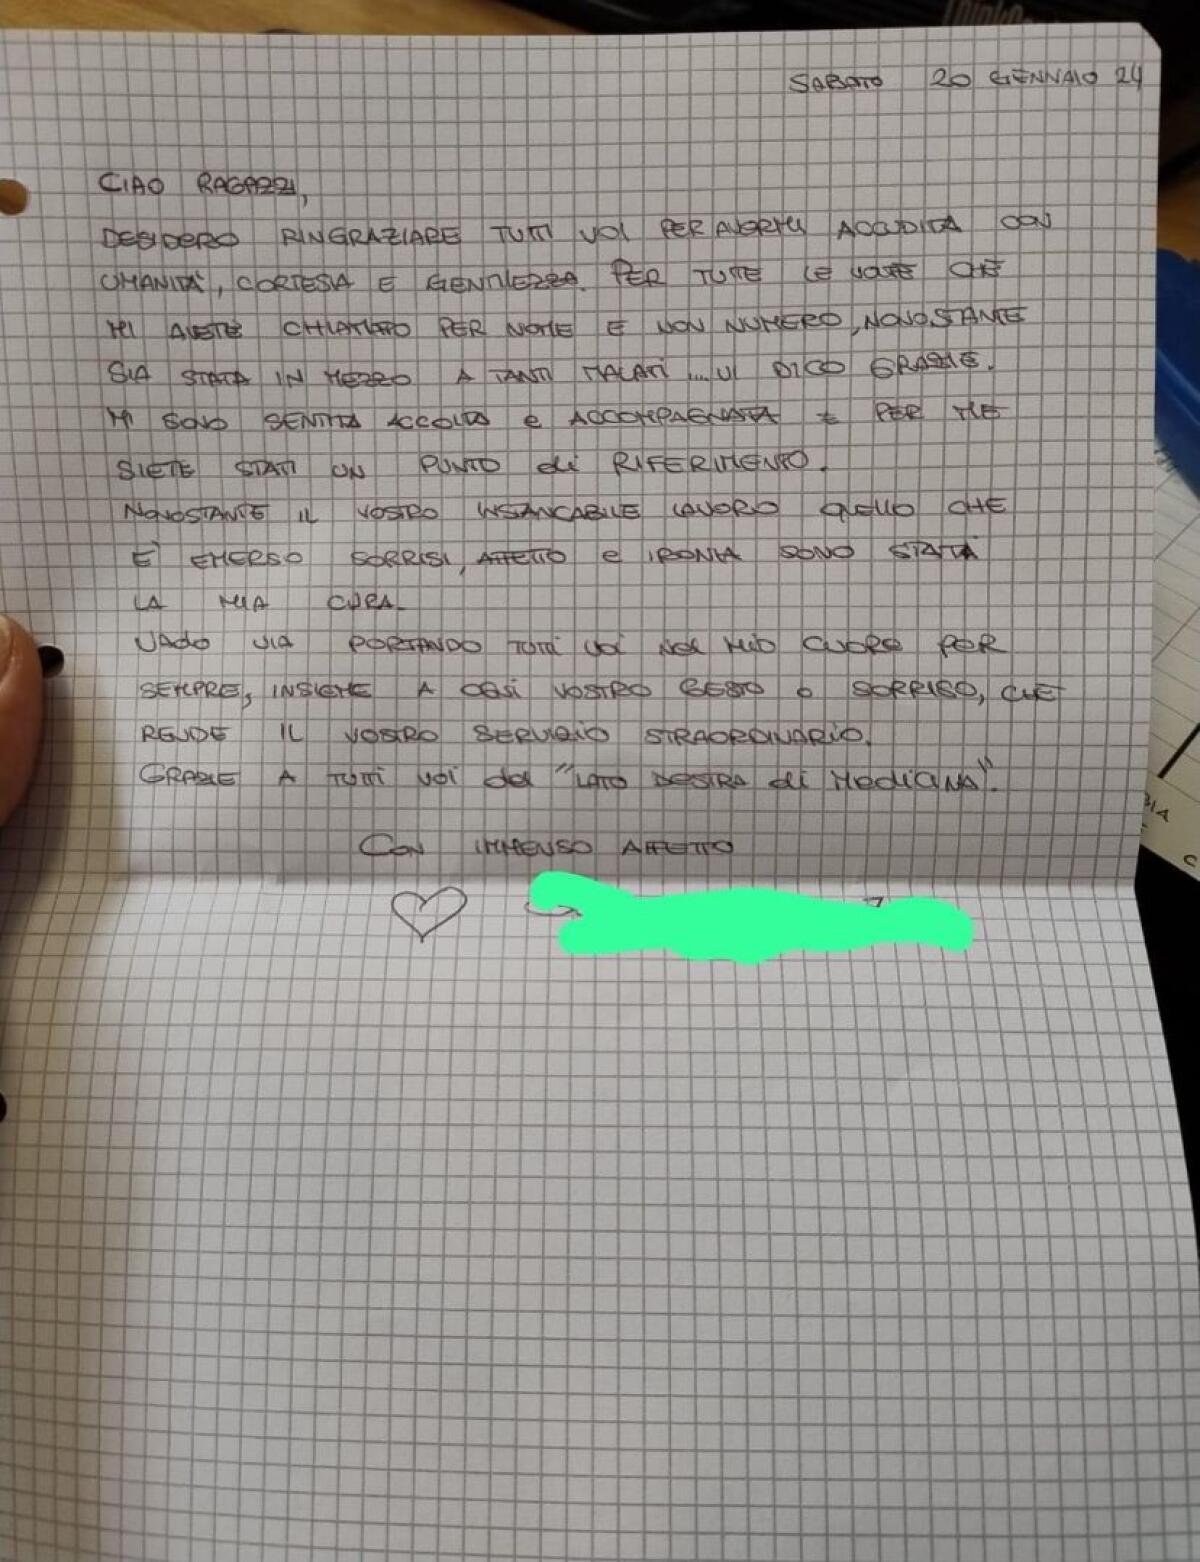 SABATO 20 GENNAIO 24
CIAO RAGAZZI,
DESIDERO RINGRAZIARE TUTTI VOI PER AVERMI ACCUDITA CON
UMANITA', CORTESIA E GENTILEZZA. PER TUTTE LE VOLTE CHE
MI AVETE CHIAMATO PER NOME E NON NUMERO, NONOSTANTE
SIA STATA IN MEZZO A TANTI MALATI ... VI DICO GRAZIE.
MI SONO SENTITA ACCOLTA e ACCOMPAGNATA E PER ME
SIETE STATI UN PUNTO di RIFERIMENTO.
NONOSTANTE IL VOSTRO INSTANCABILE LAVORO QUELLO CHE
E' EMERSO SORRISI, AFFETTO e IRONIA SONO STATA
LA MIA CURA.
VADO VIA PORTANDO TUTTI VOI NEL MIO CUORE PER
SEMPRE, INSIEME A OGNI VOSTRO GESTO o SORRISO, CHE
RENDE IL VOSTRO SERVIZIO STRAORDINARIO.
GRAZIE A TUTTI VOI del "LATO DESTRA di MEDICINA".
CON IMMENSO AFFETTO